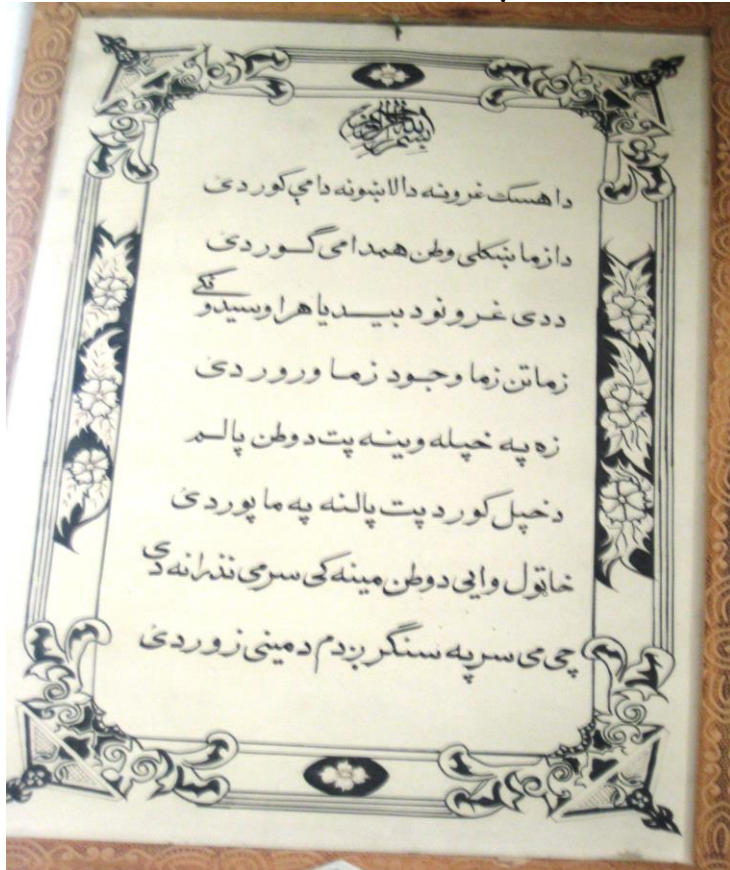 بسم الله الرحمن الرحیم
دا هسک غرونه دا لاښونه دا مې کور دئ
دا زما ښکلی وطن همدا می گور دئ
ددی غرونو د بیدیا هر اوسیدونکے
زما تن زما وجود زما ورور دئ
زه په خپله وینه پت د وطن پالم
د خپل کور د پت پالنه په ما پور دئ
خاتول وایی د وطن مینه کی سر می نذرانه دی
چی می سر په سنگر بدم د مینی زور دئ